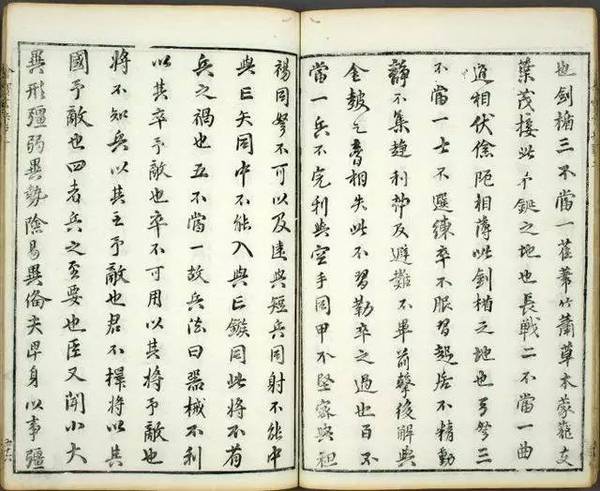 也劍楯三不當一萑葦竹蕭草木蒙蘢支
葉茂接此矛鋋之地也長戟二不當一曲
道相伏險阨相薄此劍楯之地也弓弩三
不當一士不選練卒不服習起居不精動
靜不集趨利弗及避難不畢前擊後解與
金鼓之音相失此不習勒卒之過也百不
當一兵不完利與空手同甲不堅密與袒
裼同弩不可以及遠與短兵同射不能中
與亡矢同中不能入與亡鏃同此將不省
兵之禍也五不當一故兵法曰器械不利
以其卒予敵也卒不可用以其將予敵也
將不知兵以其主予敵也君不擇將以其
國予敵也四者兵之至要也臣又聞小大
異形彊弱異勢險易異備夫卑身以事彊